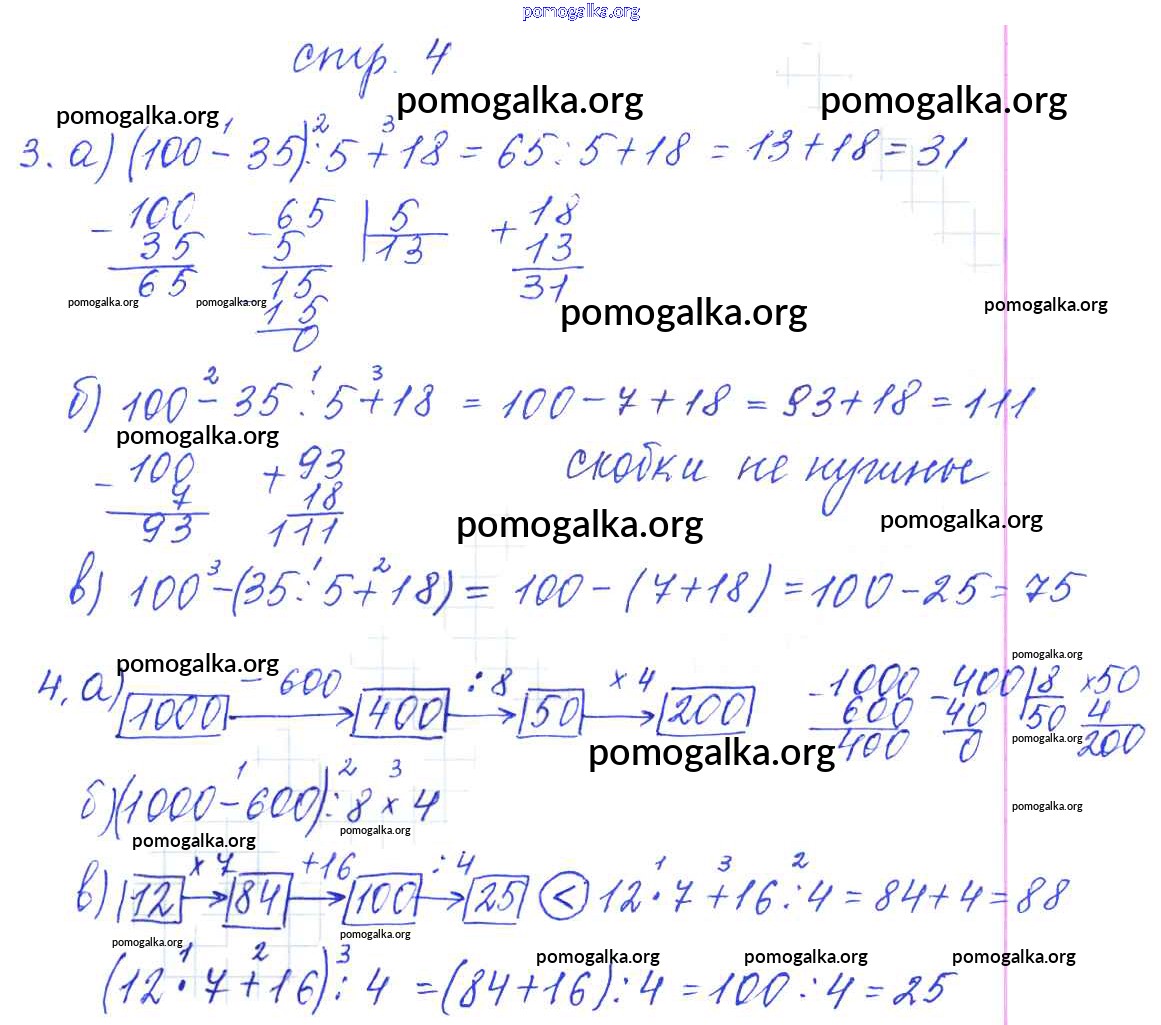 pomogalka.org
стр. 4
pomogalka.org pomogalka.org pomogalka.org
1 2 3
3. а) (100 - 35) : 5 + 18 = 65 : 5 + 18 = 13 + 18 = 31
- 100 - 65 | 5 + 18
35 5 13 13
65 - 15 31
pomogalka.org pomogalka.org pomogalka.org pomogalka.org
15
0
2 1 3
б) 100 - 35 : 5 + 18 = 100 - 7 + 18 = 93 + 18 = 111
pomogalka.org
- 100 + 93 скобки не нужные
7 18
93 111
pomogalka.org pomogalka.org
3 1 2
в) 100 - (35 : 5 + 18) = 100 - (7 + 18) = 100 - 25 = 75
pomogalka.org pomogalka.org
- 600 : 8 × 4
4. а) 1000 → 400 → 50 → 200 - 1000 - 400 | 8 × 50
600 40 50 4
400 0 200
pomogalka.org pomogalka.org
1 2 3
б) (1000 - 600) : 8 × 4
pomogalka.org pomogalka.org pomogalka.org
× 7 + 16 : 4 1 3 2
в) 12 → 84 → 100 → 25 < 12 · 7 + 16 : 4 = 84 + 4 = 88
pomogalka.org pomogalka.org
1 2 3
pomogalka.org pomogalka.org pomogalka.org
(12 · 7 + 16) : 4 = (84 + 16) : 4 = 100 : 4 = 25